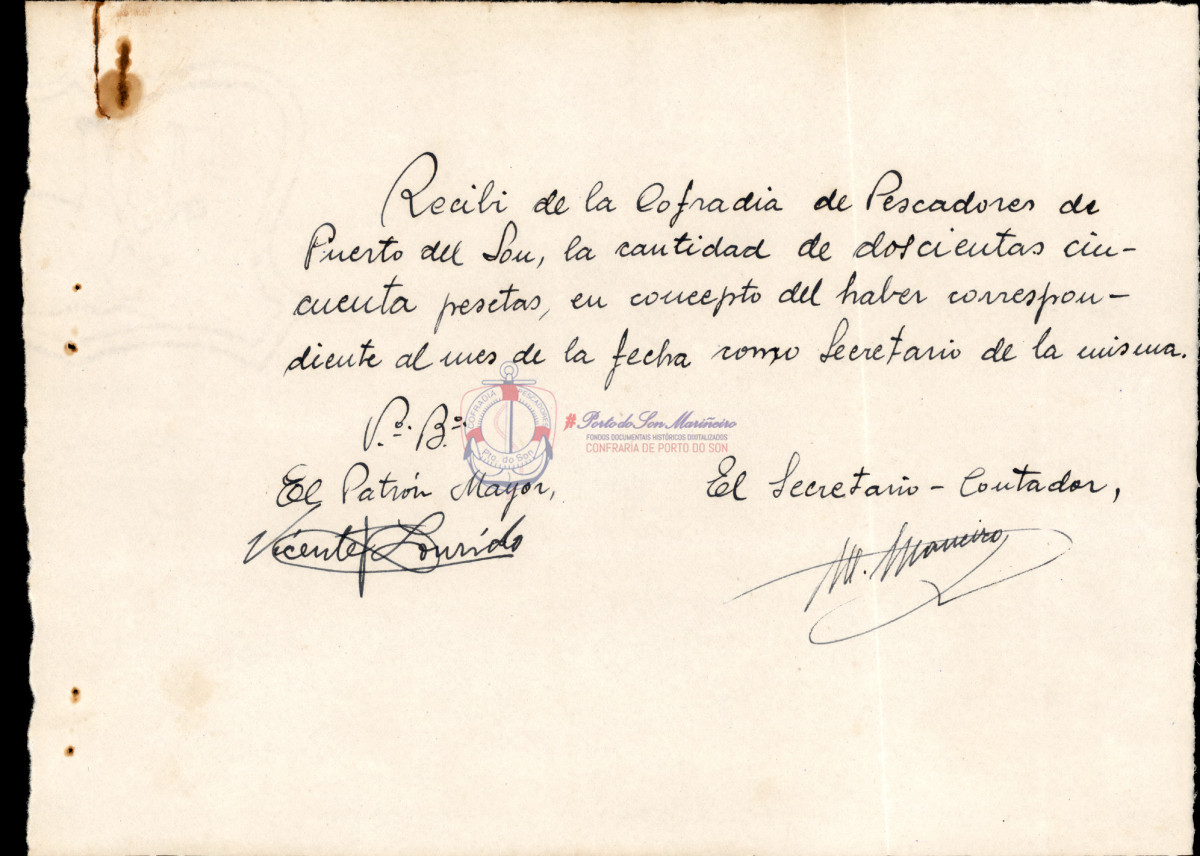 Recibi de la Cofradia de Pescadores de
Puerto del Son, la cantidad de doscientas cin-
cuenta pesetas, en concepto del haber correspon-
diente al mes de la fecha como Secretario de la misma.
V.º B.º
COFRADIA PESCADORES
Pto. do Son
#Porto do Son Mariñeiro
FONDOS DOCUMENTAIS HISTÓRICOS DIXITALIZADOS
CONFRARÍA DE PORTO DO SON
El Patrón Mayor,
El Secretario - Contador,
Vicente Lourido
M. Maneiro